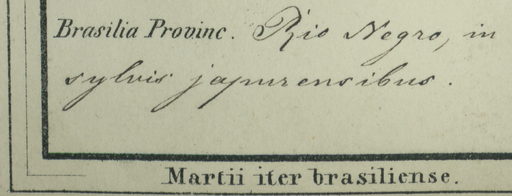 Brasilia Provinc. Rio Negro, in
sylvis japurensibus.
Martii iter brasiliense.